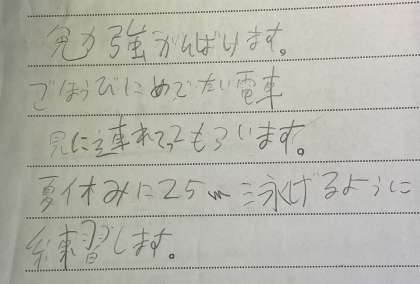 勉強がんばります。
ごほうびにめでたい電車
見に連れてってもらいます。
夏休みに25m泳げるように
練習します。